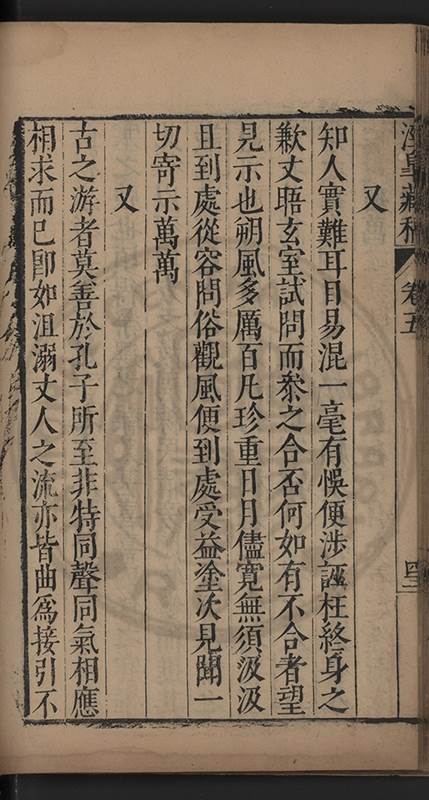 涇皐藏稿
卷五
四二
又
知人實難耳目易混一毫有悞便涉誣枉終身之
歉丈晤玄室試問而叅之合否何如有不合者望
見示也朔風多厲百凡珍重日月儘寛無須汲汲
且到處從容問俗觀風便到處受益塗次見聞一
切寄示萬萬
又
古之游者莫善於孔子所至非特同聲同氣相應
相求而已卽如沮溺丈人之流亦皆曲爲接引不